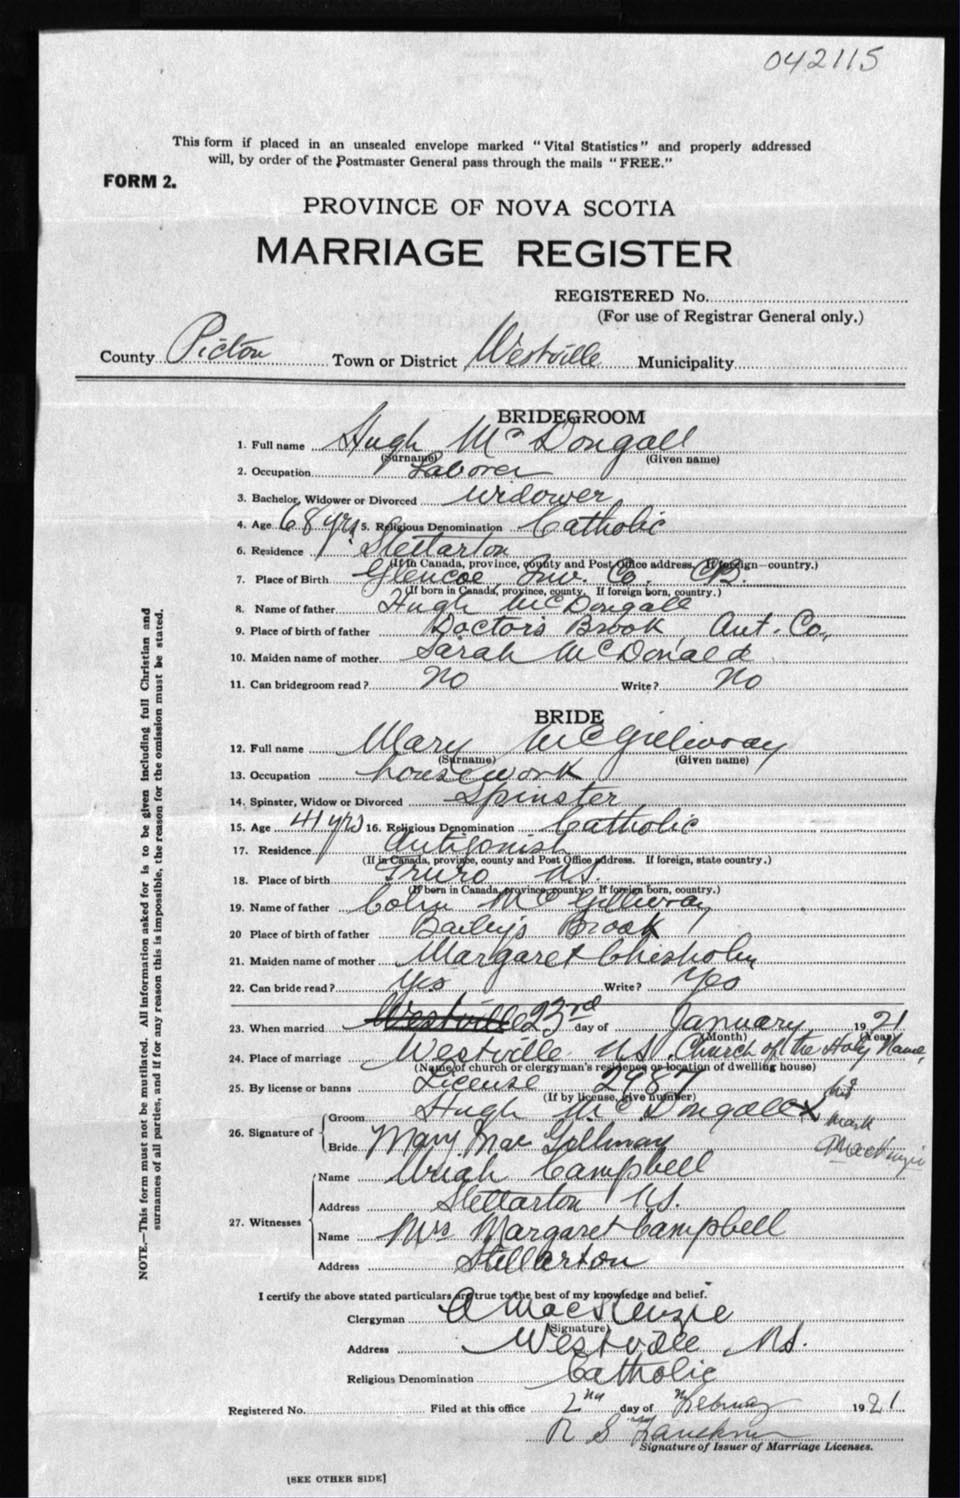 042115
This form if placed in an unsealed envelope marked "Vital Statistics" and properly addressed
will, by order of the Postmaster General pass through the mails "FREE."
FORM 2.
PROVINCE OF NOVA SCOTIA
MARRIAGE REGISTER
REGISTERED No.
(For use of Registrar General only.)
County Pictou Town or District Westville Municipality
BRIDEGROOM
1. Full name Hugh McDougall
(Surname) (Given name)
2. Occupation Laborer
3. Bachelor, Widower or Divorced Widower
4. Age 68 yrs 5. Religious Denomination Catholic
6. Residence Stellarton
(If in Canada, province, county and Post Office address. If foreign—country.)
7. Place of Birth Glencoe, Inv. Co. CB.
(If born in Canada, province, county. If foreign born, country.)
8. Name of father Hugh McDougall
9. Place of birth of father Doctor's Brook, Ant. Co.,
10. Maiden name of mother Sarah McDonald
11. Can bridegroom read? No Write? No
BRIDE
12. Full name Mary McGillivray
(Surname) (Given name)
13. Occupation housework
14. Spinster, Widow or Divorced Spinster
15. Age 41 yrs 16. Religious Denomination Catholic
17. Residence Antigonish
(If in Canada, province, county and Post Office address. If foreign, state country.)
18. Place of birth Truro N.S.
(If born in Canada, province, county? If foreign born, country.)
19. Name of father Colin McGillivray
20 Place of birth of father Bailey's Brook
21. Maiden name of mother Margaret Chisholm
22. Can bride read? Yes Write? Yes
23. When married Westville 23rd day of January 1921
(Month) (Year)
24. Place of marriage Westville N.S. Church of the Holy Name,
(Name of church or clergyman's residence or location of dwelling house)
25. By license or banns License 2987
(If by license, give number)
26. Signature of { Groom Hugh McDougall X his
mark
Bride Mary MacGillivray A MacKenzie
27. Witnesses { Name Hugh Campbell
Address Stellarton N.S.
Name Mrs Margaret Campbell
Address Stellarton
I certify the above stated particulars are true to the best of my knowledge and belief.
Clergyman A MacKenzie
(Signature)
Address Westville N.S.
Religious Denomination Catholic
Registered No. Filed at this office 2nd day of February 1921
R S
Signature of Issuer of Marriage Licenses.
[SEE OTHER SIDE]
NOTE.—This form must not be mutilated. All information asked for is to be given including full Christian and
surnames of all parties, and if for any reason this is impossible, the reason for the omission must be stated.